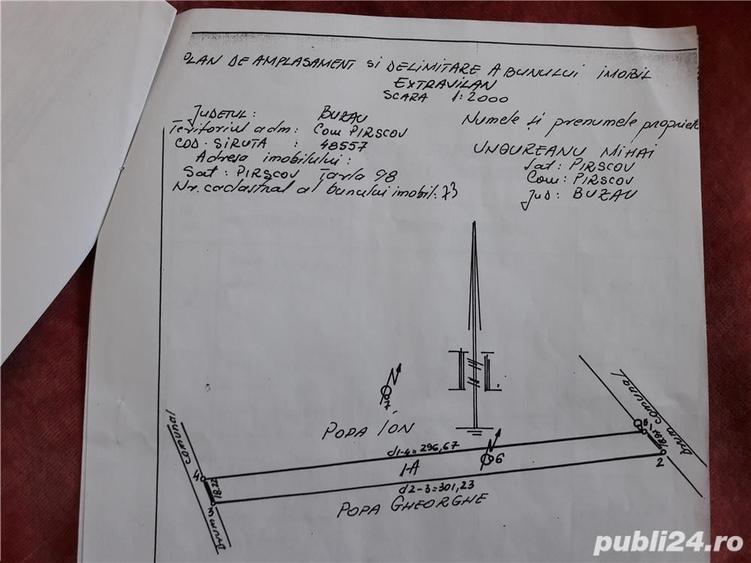 PLAN DE AMPLASAMENT SI DELIMITARE A BUNULUI IMOBIL
EXTRAVILAN
SCARA 1:2000
JUDETUL : BUZAU
Teritoriul adm: Com PIRSCOV
COD SIRUTA : 48557
Adresa imobilului :
Sat : PIRSCOV Tarla 98
Nr. cadastral al bunului imobil: 73
Numele și prenumele propriet
UNGUREANU MIHAI
Sat: PIRSCOV
Com: PIRSCOV
Jud: BUZAU
N
7
POPA ION
Drum comunal
N
6
d1-4=296,67
1-A
d2-3=301,23
POPA GHEORGHE
2
4
3
18.22
Drum comunal
publi24.ro